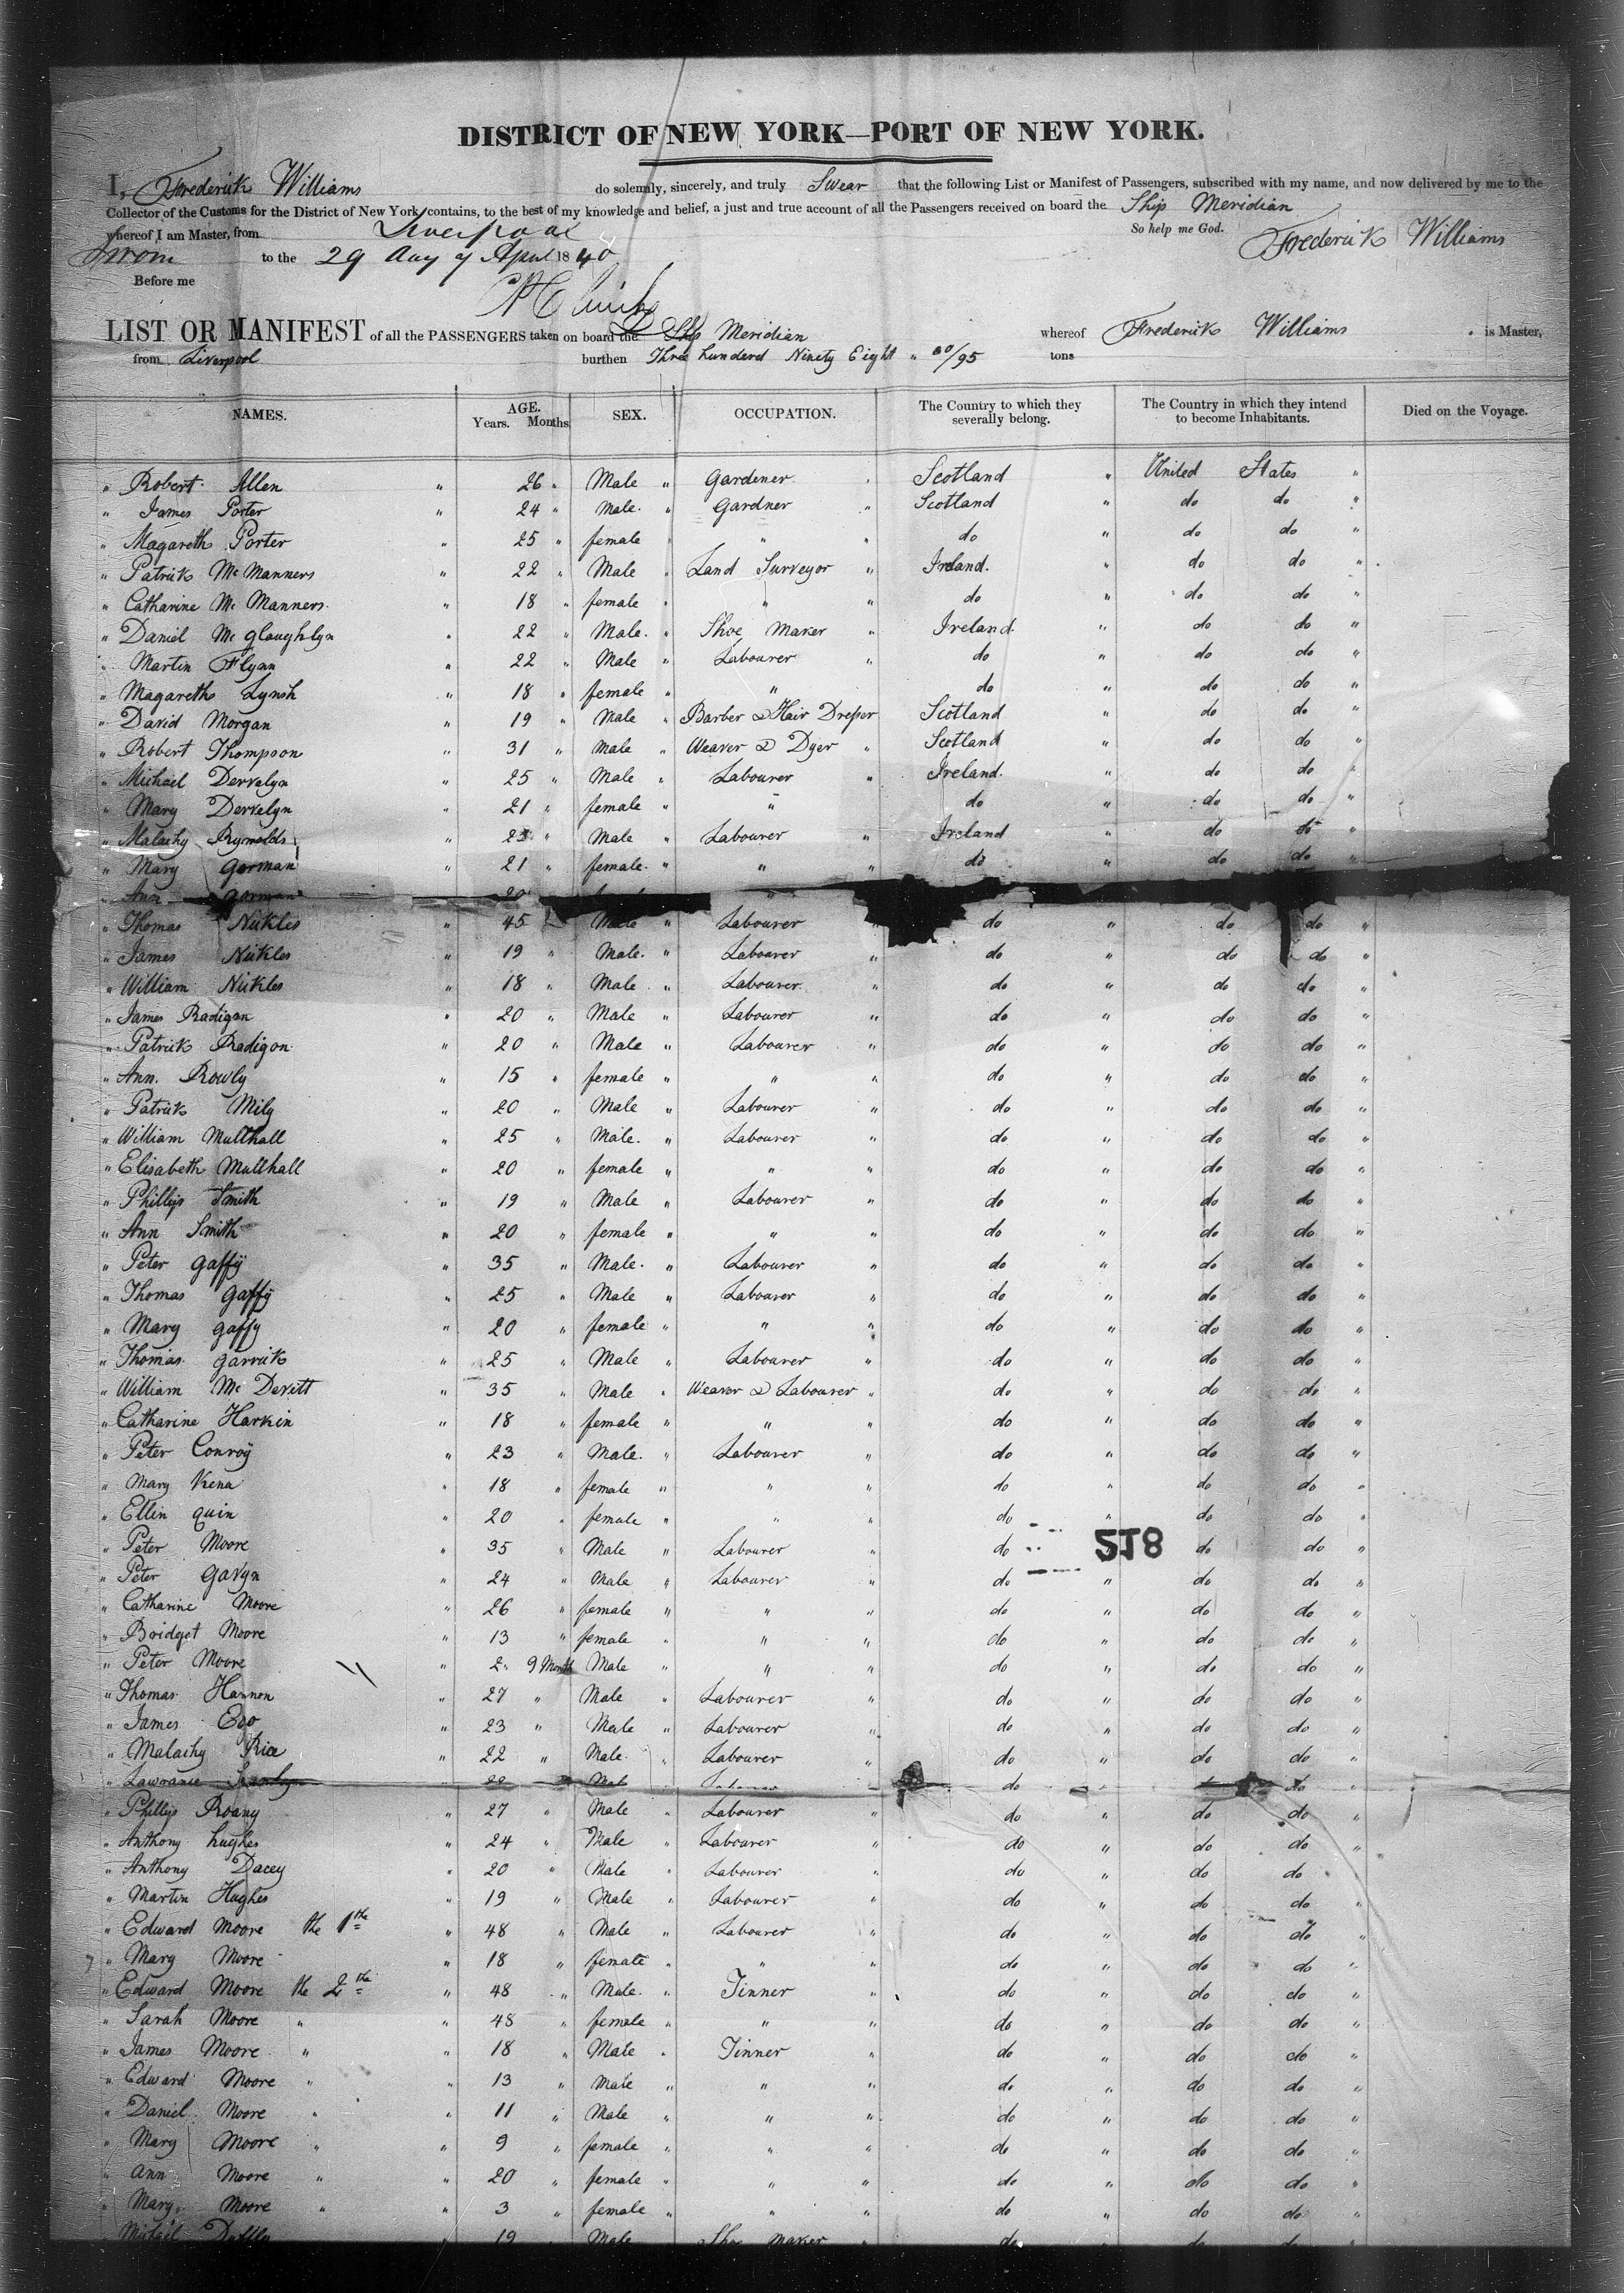 DISTRICT OF NEW YORK—PORT OF NEW YORK.
I, Frederick Williams do solemnly, sincerely, and truly Swear that the following List or Manifest of Passengers, subscribed with my name, and now delivered by me to the
Collector of the Customs for the District of New York, contains, to the best of my knowledge and belief, a just and true account of all the Passengers received on board the Ship Meridian
whereof I am Master, from Liverpool So help me God. Frederick Williams
Sworn to the 29 day of April 1840
Before me
LIST OR MANIFEST of all the PASSENGERS taken on board the Ship Meridian whereof Frederick Williams is Master,
from Liverpool burthen Three hunderd Ninety Eight " 80/95 tons
NAMES. AGE. Years. Months. SEX. OCCUPATION. The Country to which they severally belong. The Country in which they intend to become Inhabitants. Died on the Voyage.
" Robert Allen " 26 " Male " Gardener Scotland " United States "
" James Porter " 24 " Male " Gardner " Scotland " do do "
" Magareth Porter " 25 " female " " " do " do do "
" Patrick McManners " 22 " Male " Land Surveyor " Ireland. " do do "
" Catharine McManners " 18 " female " " " do " do do "
" Daniel McGloughlyn " 22 " Male " Shoe Maker " Ireland " do do "
" Martin Flynn " 22 " Male " Labourer " do " do do "
" Magareth Lynsh " 18 " female " " do " do do "
" David Morgan " 19 " Male " Barber & Hair Dresser Scotland " do do "
" Robert Thompson " 31 " Male " Weaver & Dyer " Scotland " do do "
" Michael Dervelyn " 25 " Male " Labourer " Ireland. " do do "
" Mary Dervelyn " 21 " female " " do " do do "
" Malachy Rynolds " 23 " Male " Labourer " Ireland " do do "
" Mary Gorman " 21 " female " " " do " do do "
" Ann Gorman 20
" Thomas Nickles " 45 Male " Labourer " do " do do "
" James Nickles " 19 " Male " Labourer " do " do do "
" William Nickles " 18 " Male " Labourer " do " do do "
" James Radigan " 20 " Male " Labourer " do " do do "
" Patrick Radigon " 20 " Male " Labourer " do " do do "
" Ann Rowly " 15 " female " " " do " do do "
" Patrick Mily " 20 " Male " Labourer " do " do do "
" William Mullhall " 25 " Male " Labourer " do " do do "
" Elisabeth Mullhall " 20 " female " " " do " do do "
" Phillip Smith " 19 " Male " Labourer " do " do do "
" Ann Smith " 20 " female " " " do " do do "
" Peter Gaffy " 35 " Male " Labourer " do " do do "
" Thomas Gaffy " 25 " Male " Labourer " do " do do "
" Mary Gaffy " 20 " female " " " do " do do "
" Thomas Garrick " 25 " Male " Labourer " do " do do "
" William McDevitt " 35 " Male " Weaver & Labourer " do " do do "
" Catharine Harkin " 18 " female " " " do " do do "
" Peter Conroy " 23 " Male " Labourer " do " do do "
" Mary Kena " 18 " female " " " do " do do "
" Ellin Quin " 20 " female " " " do " do do "
" Peter Moore " 35 " Male " Labourer " do " do do "
" Peter Gavyn " 24 " Male " Labourer " do " do do "
" Catharine Moore " 26 " female " " " do " do do "
" Bridget Moore " 13 " female " " " do " do do "
" Peter Moore " 2 " 9 Month Male " " " do " do do "
" Thomas Hannon " 27 " Male " Labourer " do " do do "
" James Ego " 23 " Male " Labourer " do " do do "
" Malachy Rice " 22 " Male " Labourer " do " do do "
" Lawrance 22 Male Labourer do " do do "
" Phillip Roany " 27 " Male " Labourer " do " do do "
" Anthony hughes " 24 " Male " Labourer " do " do do "
" Anthony Dacey " 20 " Male " Labourer " do " do do "
" Martin Hughes " 19 " Male " Labourer " do " do do "
" Edward Moore the 1the " 48 " Male " Labourer " do " do do "
" Mary Moore " 18 " female " " " do " do do "
" Edward Moore the 2the " 48 " Male " Tinner " do " do do "
" Sarah Moore " " 48 " female " " " do " do do "
" James Moore " " 18 " Male " Tinner " do " do do "
" Edward Moore " " 13 " Male " " " do " do do "
" Daniel Moore " " 11 " Male " " " do " do do "
" Mary Moore " " 9 " female " " " do " do do "
" Ann Moore " " 20 " female " " " do " do do "
" Mary Moore " " 3 " female " " " do " do do "
" Michael 19 Male Shoe maker do do do